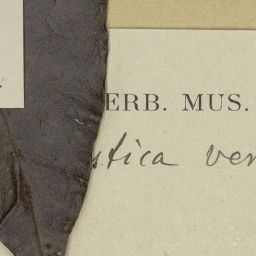 ERB. MUS.
stica ver